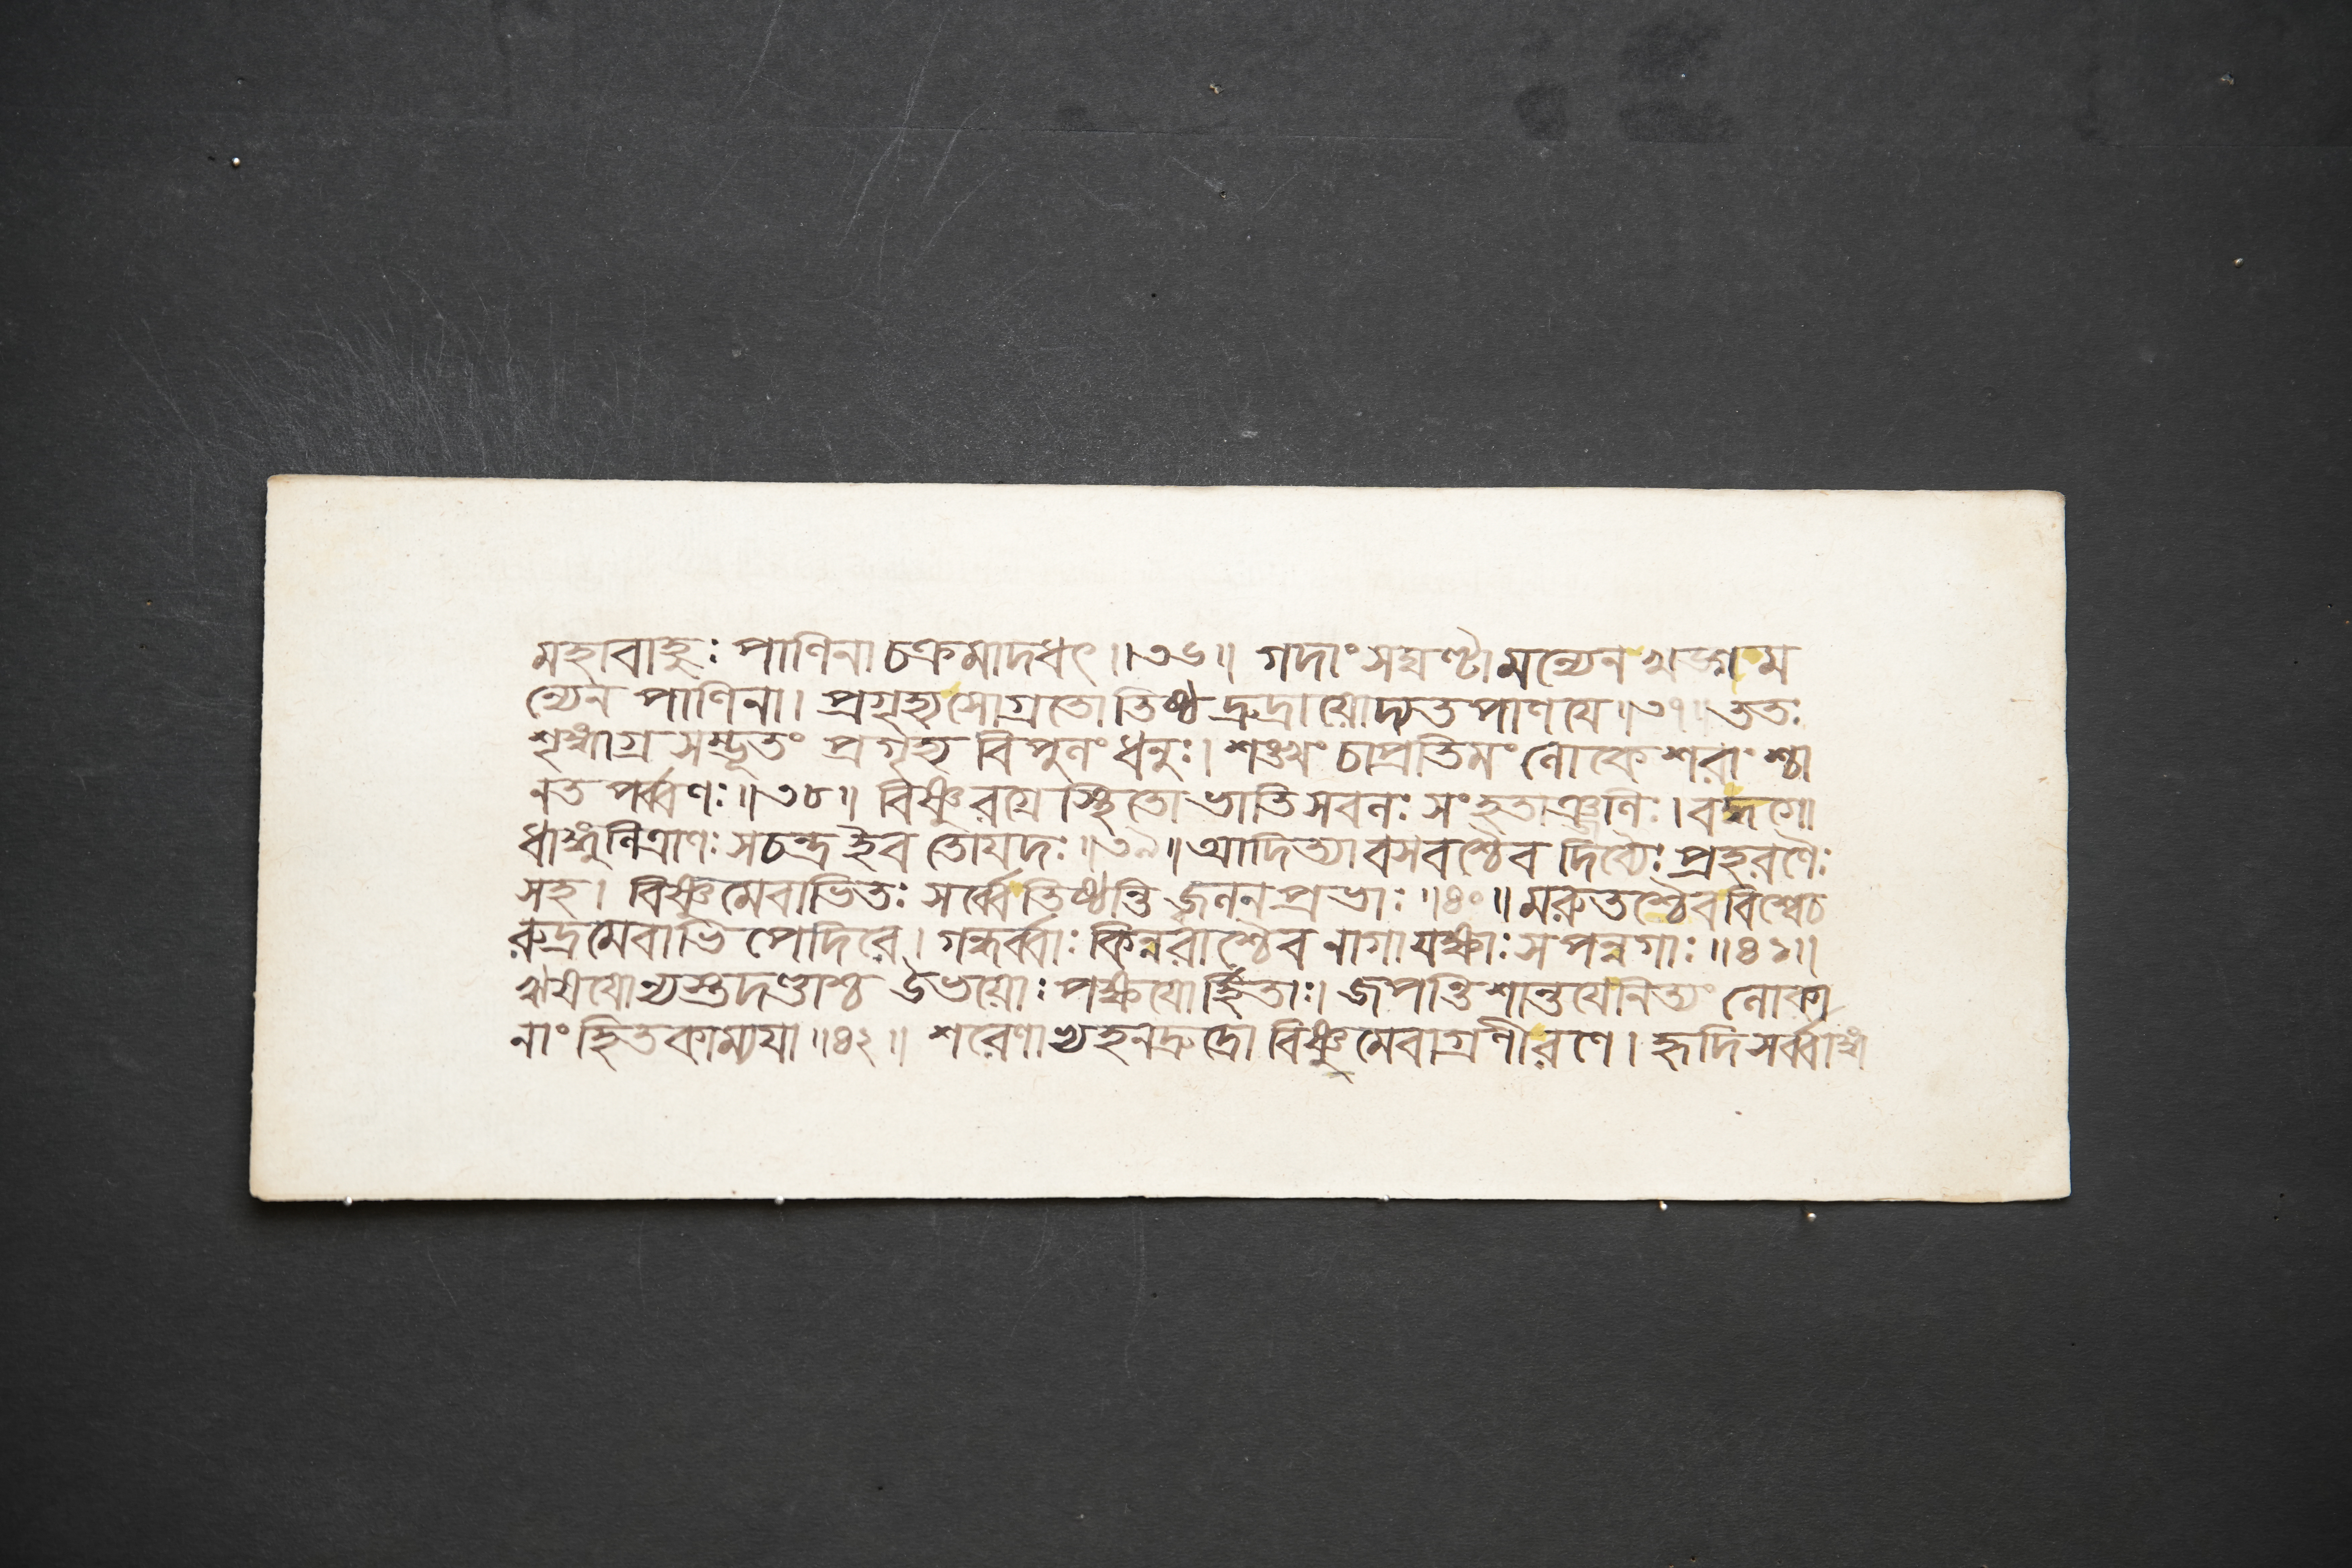 মহাবাহুঃ পাণিনা চক্রমাদধৎ॥৩৬॥ গদাং সঘণ্টামন্যেন খড্গম
ন্যেন পাণিনা। প্রগৃহ্য সোগ্রতোতিষ্ঠদ্রুদ্রায়োদ্যত পাণয়ে॥৩৭॥ ততঃ
শৃঙ্গাগ্র সম্ভূতং প্রগৃহ্য বিপুলং ধনুঃ। শঙ্খং চাপ্রতিমং লোকে শরাংশ্চা
নত পর্ব্বণঃ॥৩৮॥ বিষ্ণুরগ্রে স্থিতো ভাতি সবলঃ সংহতাঞ্জলিঃ। বদ্ধগো
ধাঙ্গুলিত্রাণঃ সচন্দ্র ইব তোয়দঃ॥৩৯॥ আদিত্যা বসবশ্চৈব দিব্যৈঃ প্রহরণৈঃ
সহ। বিষ্ণুমেবাভিতঃ সর্ব্বে তিষ্ঠন্তি জ্বলনপ্রভাঃ॥৪০॥ মরুতশ্চৈব বিশ্বে চ
রুদ্রমেবাভি পেদিরে। গন্ধর্ব্বাঃ কিন্নরাশ্চৈব নাগা যক্ষাঃ সপন্নগাঃ॥৪১॥
ঋষয়োন্যস্তদণ্ডাশ্চ উভয়োঃ পক্ষয়োর্হিতাঃ। জপন্তি শান্তয়ে নিত্যং লোকা
নাং হিতকাম্যয়া॥৪২॥ শরেণাভ্যহনদ্রুদ্রো বিষ্ণুমেবাগ্রণীরণে। হৃদি সর্ব্বাঙ্গ